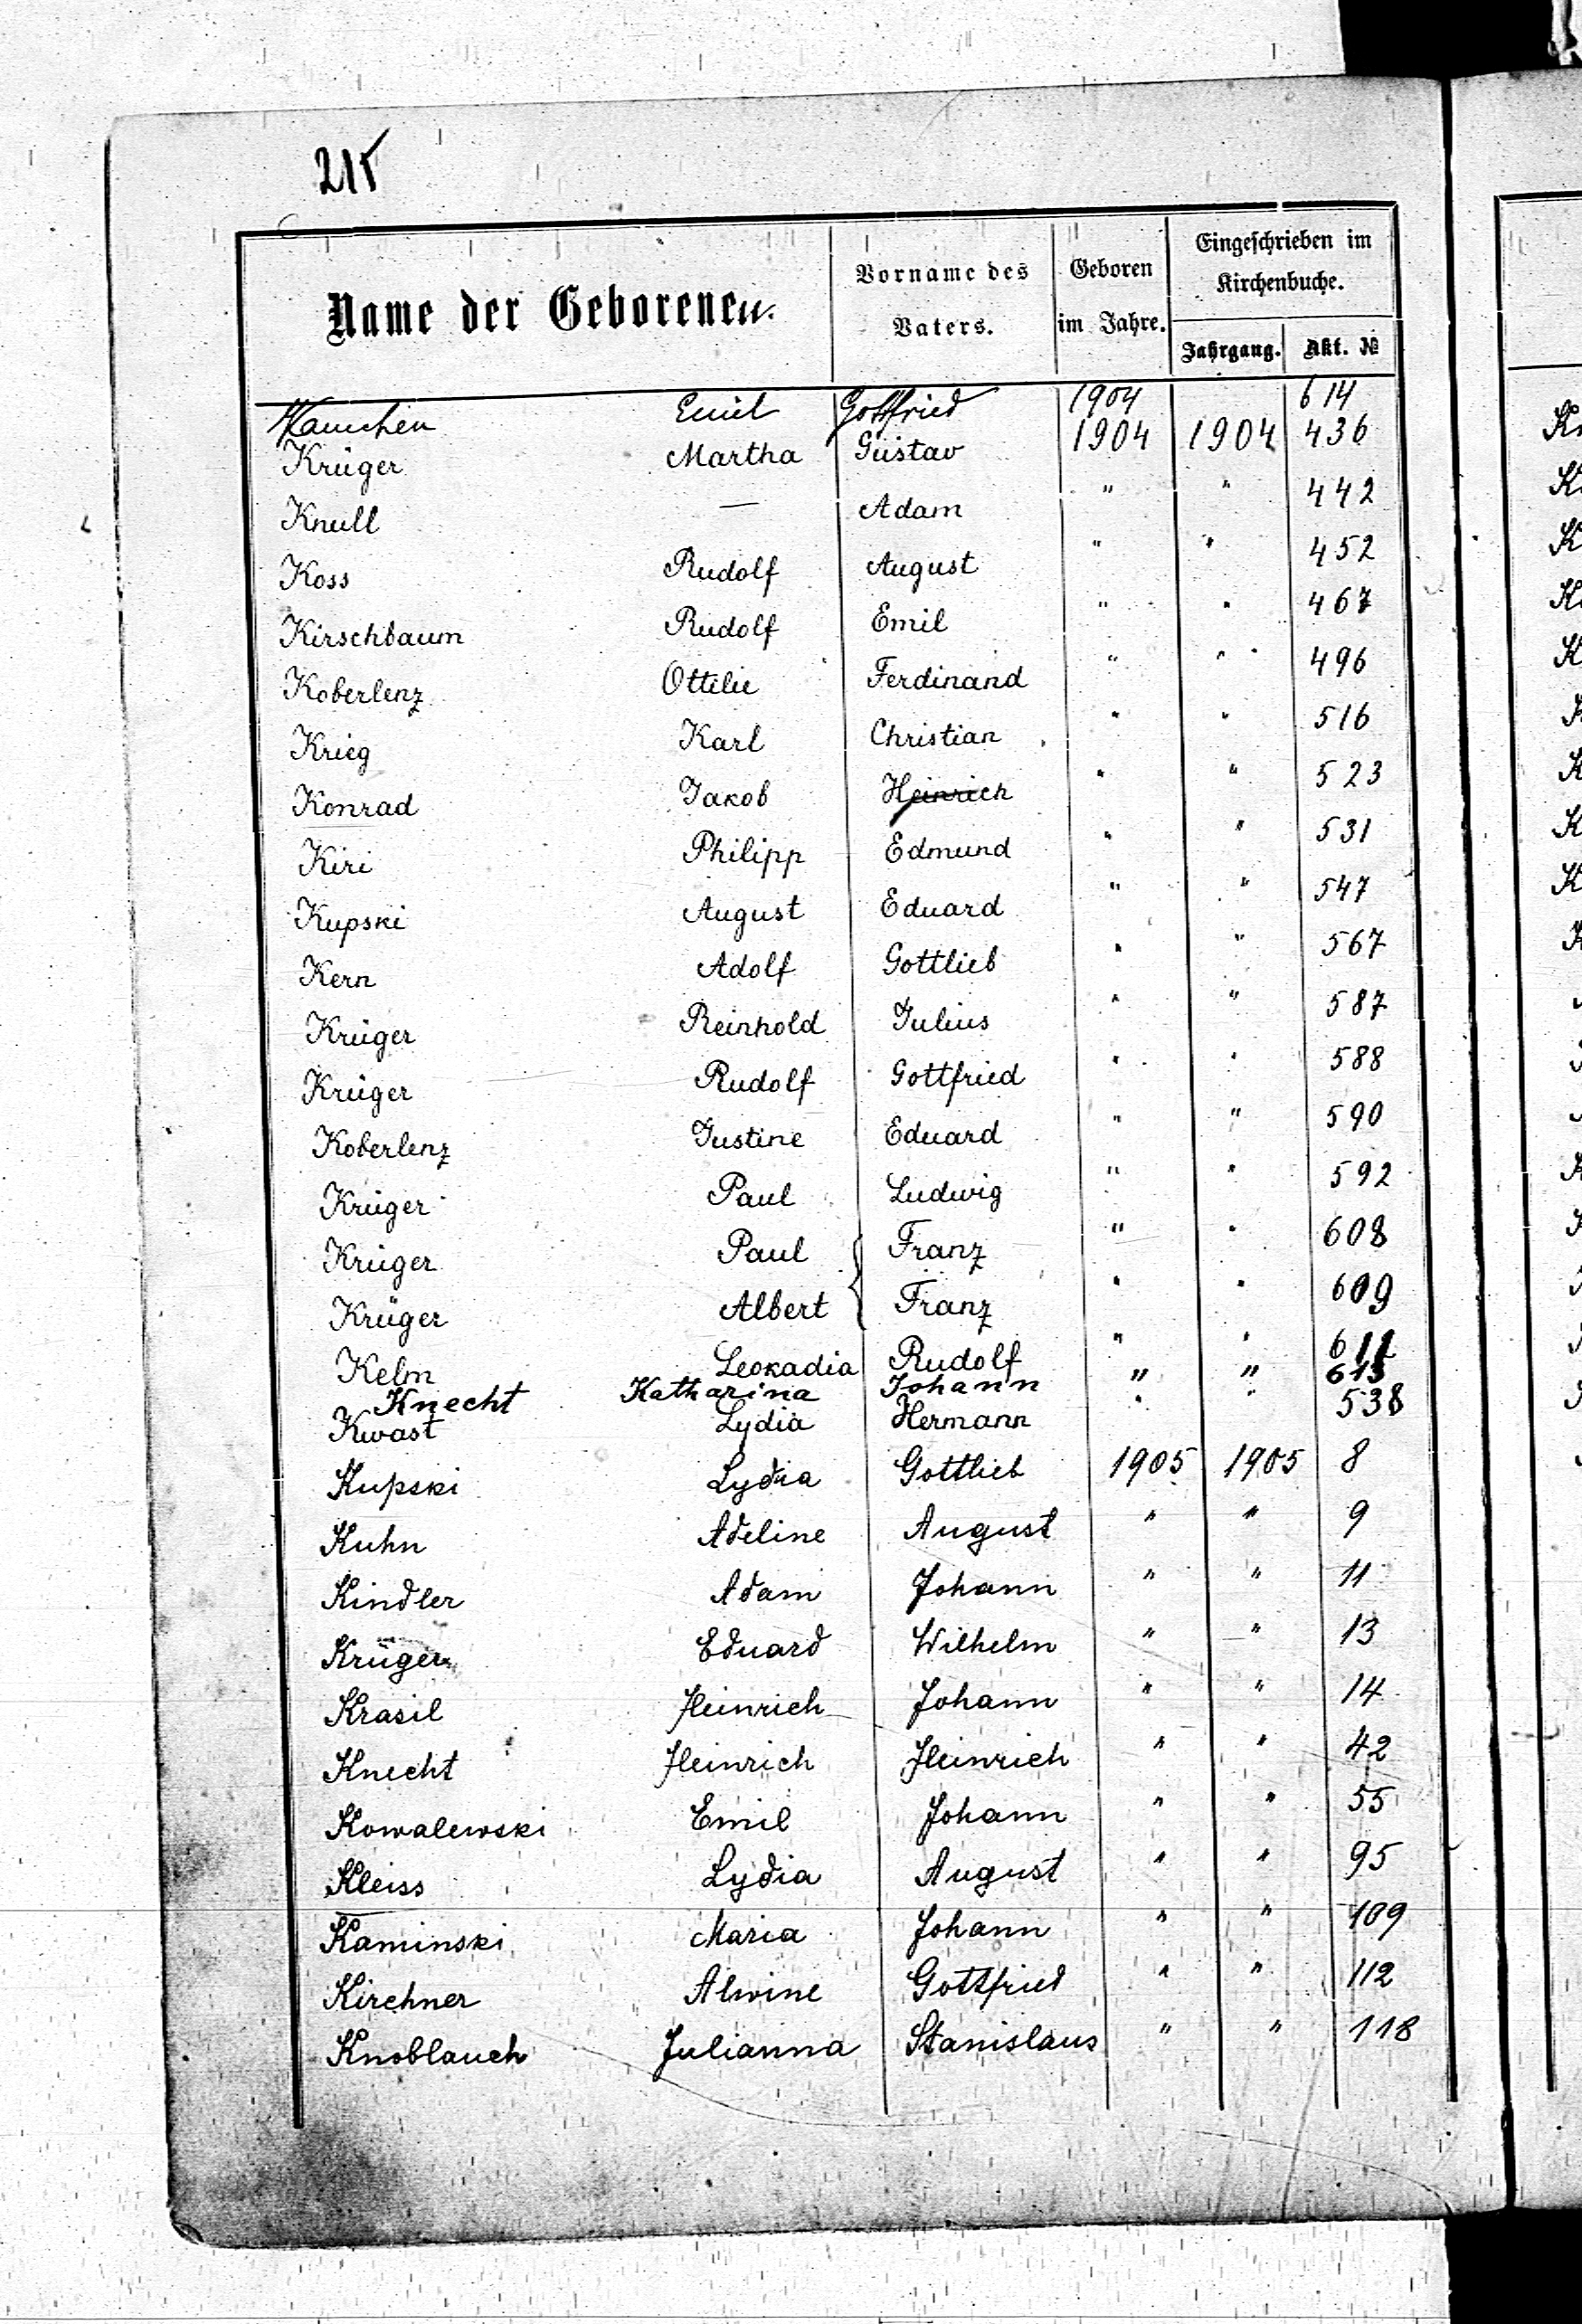 215
Name der Geborenen.
Vorname des Vaters.
Geboren im Jahre.
Eingeschrieben im Kirchenbuche.
Jahrgang. Akt. №
Emil Gottfried 1904 614
Krüger Martha Gustav 1904 1904 436
Knull — Adam " " 442
Koss Rudolf August " " 452
Kirschbaum Rudolf Emil " " 467
Koberlenz Ottilie Ferdinand " " 496
Krieg Karl Christian " " 516
Konrad Jakob Heinrich " " 523
Kiri Philipp Edmund " " 531
Kupski August Eduard " " 547
Kern Adolf Gottlieb " " 567
Krüger Reinhold Julius " " 587
Krüger Rudolf Gottfried " " 588
Koberlenz Justine Eduard " " 590
Krüger Paul Ludwig " " 592
Krüger Paul { Franz " " 608
Krüger Albert { Franz " " 609
Kelm Leokadia Rudolf " "
Knecht Katharina Johann " " 613
Kwast Lydia Hermann " " 538
Kupski Lydia Gottlieb 1905 1905 8
Kuhn Adeline August " " 9
Kindler Adam Johann " " 11
Krüger Eduard Wilhelm " " 13
Krasil Heinrich Johann " " 14
Knecht Heinrich Heinrich " " 42
Kowalewski Emil Johann " " 55
Kleiss Lydia August " " 95
Kaminski Maria Johann " " 109
Kirchner Alwine Gottfried " " 112
Knoblauch Julianna Stanislaus " " 118